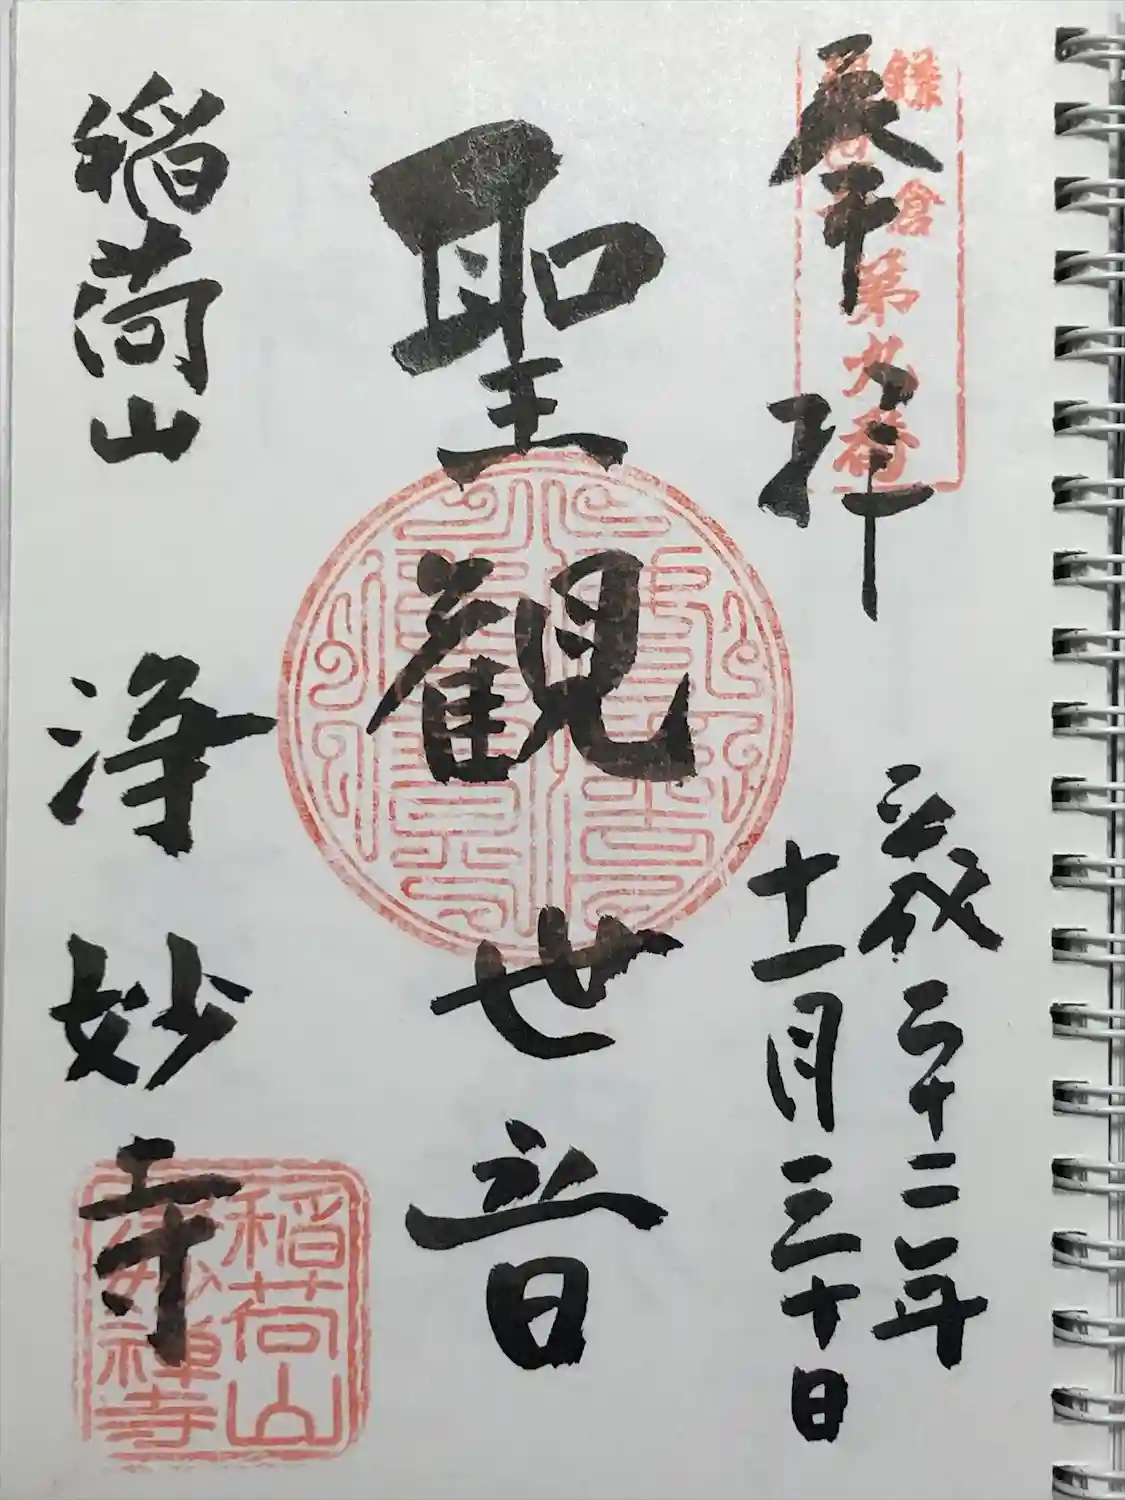 鎌倉
第九番
奉拝
平成二十二年
十一月三十日
聖観世音
稲荷山 浄妙寺
稲荷山
浄妙禅寺